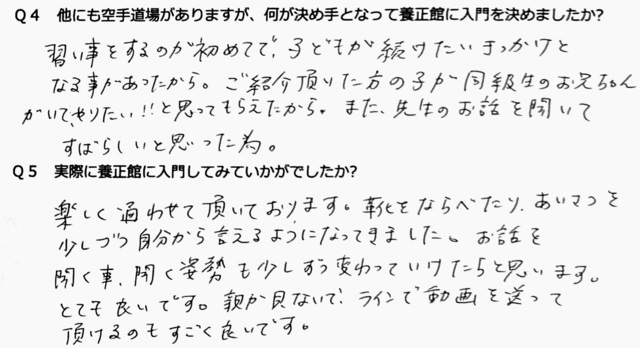 Q4 他にも空手道場がありますが、何が決め手となって養正館に入門を決めましたか?
習い事をするのが初めてで、子どもが続けたいきっかけと
なる事があったから。ご紹介頂いた方の子が同級生のお兄ちゃん
がいて、やりたい!!と思ってもらえたから。また、先生のお話を聞いて
すばらしいと思った為。
Q5 実際に養正館に入門してみていかがでしたか?
楽しく通わせて頂いております。靴をならべたり、あいさつを
少しづつ自分から言えるようになってきました。お話を
聞く事、聞く姿勢も少しずつ変わっていけたらと思います。
とても良いです。親が見ないで、ラインで動画を送って
頂けるのもすごく良いです。